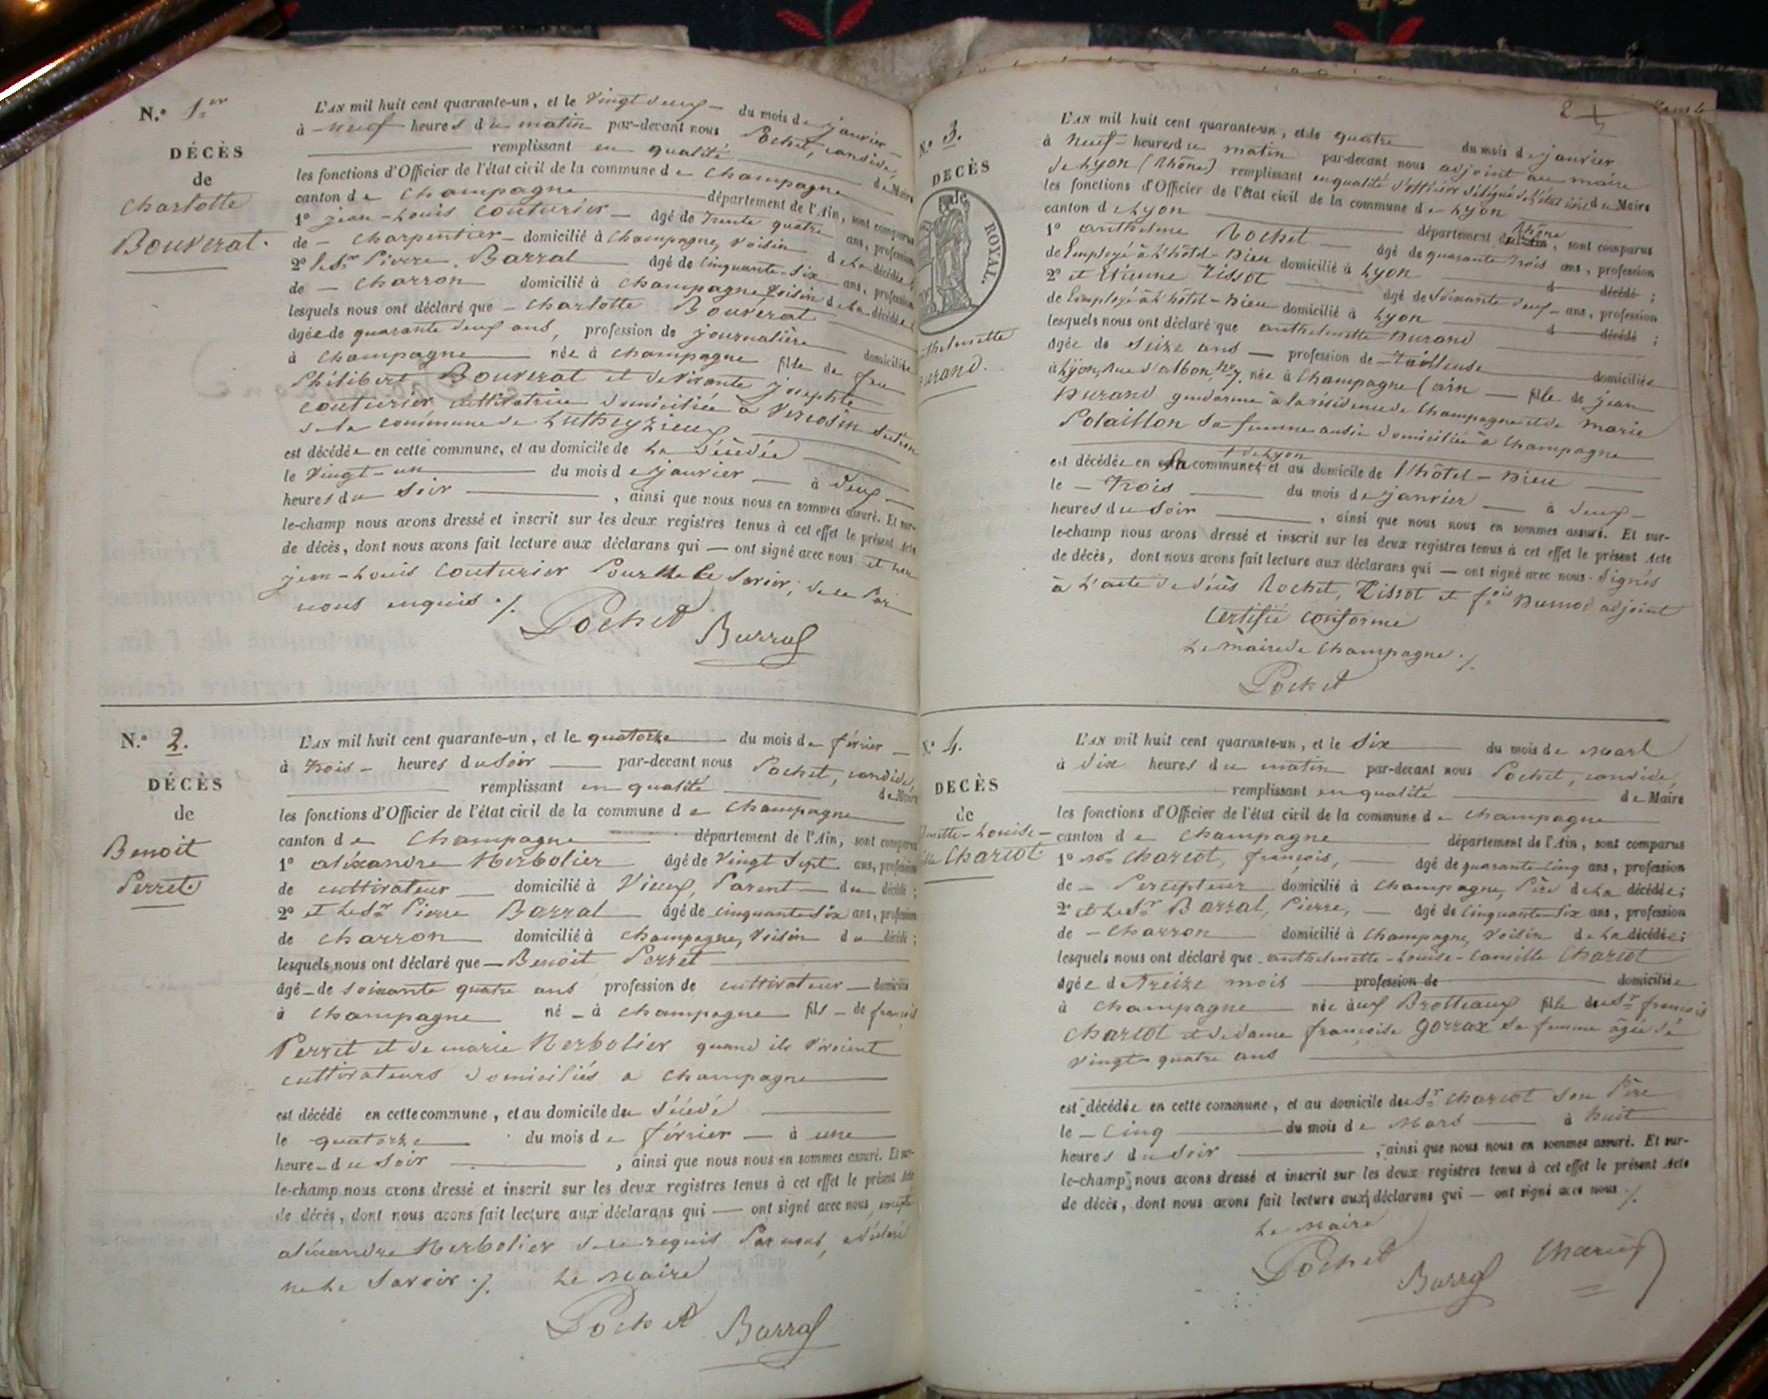 N.° 1er
DÉCÈS
de
Charlotte
Bouverat.
L'AN mil huit cent quarante-un, et le vingt deux du mois de janvier
à neuf heures du matin par-devant nous Pochet, candide,
remplissant en qualité de Maire
les fonctions d'Officier de l'état civil de la commune de Champagne
canton de Champagne département de l'Ain, sont comparus
1° jean-Louis Couturier âgé de trente quatre ans, profession
de charpentier domicilié à Champagne, voisin de la décédée
2° le Sr Pierre Barral âgé de cinquante-six ans, profession
de charron domicilié à Champagne voisin de la décédée
lesquels nous ont déclaré que Charlotte Bouverat
âgée de quarante deux ans, profession de journalière domiciliée
à Champagne née à Champagne fille de feu
Philibert Bouverat et de vivante josephte
Couturier cultivatrice domiciliée à
de la commune de Lutheyzieux
est décédée en cette commune, et au domicile de la décédée
le vingt-un du mois de janvier à deux
heures du soir, ainsi que nous nous en sommes assuré. Et sur-
le-champ nous avons dressé et inscrit sur les deux registres tenus à cet effet le présent Acte
de décès, dont nous avons fait lecture aux déclarans qui ont signé avec nous et non
jean-Louis Couturier pour ne le savoir, de ce par
nous enquis ./.
Pochet Barral
N.° 2.
DÉCÈS
de
Benoit
Perret.
L'AN mil huit cent quarante-un, et le quatorze du mois de février
à trois heures du soir par-devant nous Pochet, candide,
remplissant en qualité de Maire
les fonctions d'Officier de l'état civil de la commune de Champagne
canton de Champagne département de l'Ain, sont comparus
1° aléxandre Herbolier âgé de vingt sept ans, profession
de cultivateur domicilié à Vieux, Parent du décédé;
2° et le Sr Pierre Barral âgé de cinquante six ans, profession
de charron domicilié à Champagne, voisin du décédé;
lesquels nous ont déclaré que Benoit Perret
âgé de soixante quatre ans profession de cultivateur domicilié
à Champagne né à Champagne fils de françois
Perret et de marie Herbolier quand ils vivoient
cultivateurs domiciliés a Champagne
est décédé en cette commune, et au domicile du décédé
le quatorze du mois de février à une
heure du soir, ainsi que nous nous en sommes assuré. Et sur-
le-champ nous avons dressé et inscrit sur les deux registres tenus à cet effet le présent Acte
de décès, dont nous avons fait lecture aux déclarans qui ont signé avec nous, excepté
aléxandre Herbolier de ce requis par nous, a déclaré
ne le savoir ./. Le Maire
Pochet Barral
2
N.° 3.
DÉCÈS
ROYAL.
thelmette
urand.
L'AN mil huit cent quarante-un, et le quatre du mois de janvier
à neuf heures du matin par-devant nous adjoint au maire
de Lyon (Rhône) remplissant en qualité d'officier délégué de l'état civil de Maire
les fonctions d'Officier de l'état civil de la commune de Lyon
canton de Lyon département du Rhône, sont comparus
1° anthelme Rochet âgé de quarante trois ans, profession
de Employé à l'hôtel-Dieu domicilié à Lyon d décédé;
2° et Etienne Tissot âgé de soixante deux ans, profession
de Employé à l'hôtel-Dieu domicilié à Lyon d décédé;
lesquels nous ont déclaré que anthelmette Durand
âgée de seize ans profession de Tailleuse domiciliée
à Lyon, rue d'albon, no 7, née à Champagne (ain fille de jean
Durand gendarme à la résidence de Champagne et de marie
Polaillon sa femme aussi domiciliée à Champagne
est décédée en la commune de Lyon et au domicile de l'hôtel-Dieu
le trois du mois de janvier à deux
heures du soir, ainsi que nous nous en sommes assuré. Et sur-
le-champ nous avons dressé et inscrit sur les deux registres tenus à cet effet le présent Acte
de décès, dont nous avons fait lecture aux déclarans qui ont signé avec nous. Signés
à l'acte de décès Rochet, Tissot et fçois Dumod adjoint
Certifié conforme
Le maire de Champagne ./.
Pochet
N.° 4.
DÉCÈS
de
mette-Louise-
Charcot
L'AN mil huit cent quarante-un, et le six du mois de mars
à dix heures du matin par-devant nous Pochet, candide,
remplissant en qualité de Maire
les fonctions d'Officier de l'état civil de la commune de Champagne
canton de Champagne département de l'Ain, sont comparus
1° Charcot, françois, âgé de quarante cinq ans, profession
de Percepteur domicilié à Champagne, Père de la décédée;
2° et le Sr Barral, Pierre, âgé de cinquante-six ans, profession
de charron domicilié à Champagne, voisin de la décédée;
lesquels nous ont déclaré que anthelmette-Louise-Camille Charcot
âgée de treize mois profession de domiciliée
à Champagne née aux Brotteaux fille du Sr françois
Charcot et de dame françoise Gorrax sa femme âgée de
vingt-quatre ans
est décédée en cette commune, et au domicile du Sr Charcot son Père
le cinq du mois de Mars à huit
heures du soir, ainsi que nous nous en sommes assuré. Et sur-
le-champ nous avons dressé et inscrit sur les deux registres tenus à cet effet le présent Acte
de décès, dont nous avons fait lecture aux déclarans qui ont signé avec nous ./.
Le Maire
Pochet Barral Charcot